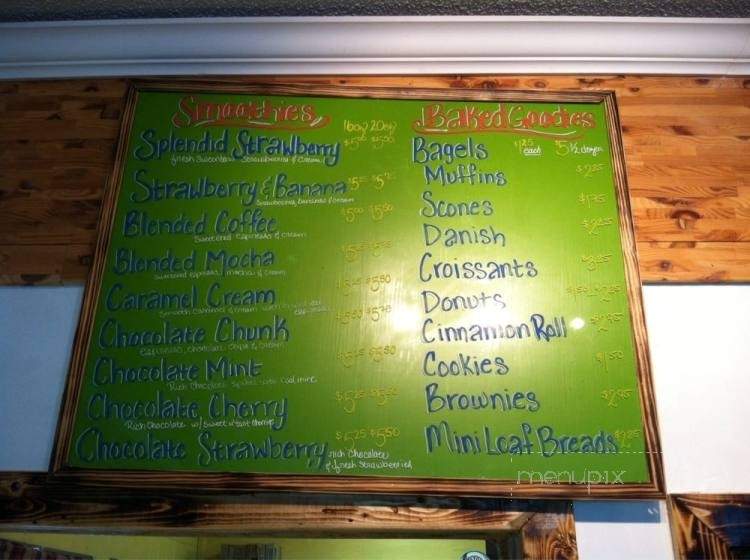 Smoothies
16oz 20oz
Splendid Strawberry
Fresh Sweeten Strawberries & Cream
Strawberry & Banana
Strawberries, Bananas & Cream
Blended Coffee $5.00 $5.50
Sweetened espresso & cream
Blended Mocha
Sweetened espresso, mocha & cream
Caramel Cream $5.25 $5.50
Smooth caramel & cream
Chocolate Chunk
espresso, chocolate chips & cream
Chocolate Mint
Rich Chocolate with cool mint
Chocolate Cherry $5.25
Rich Chocolate w/ Sweet Tart Cherries
Chocolate Strawberry $5.25 $5.50
rich chocolate
& fresh Strawberries
Baked Goodies
Bagels $1.25 each $5 1/2 dozen
Muffins $2.25
Scones $1.75
Danish $2.25
Croissants $3.25
Donuts
Cinnamon Roll $2.95
Cookies $1.50
Brownies $2.95
Mini Loaf Breads $2.25
menupix